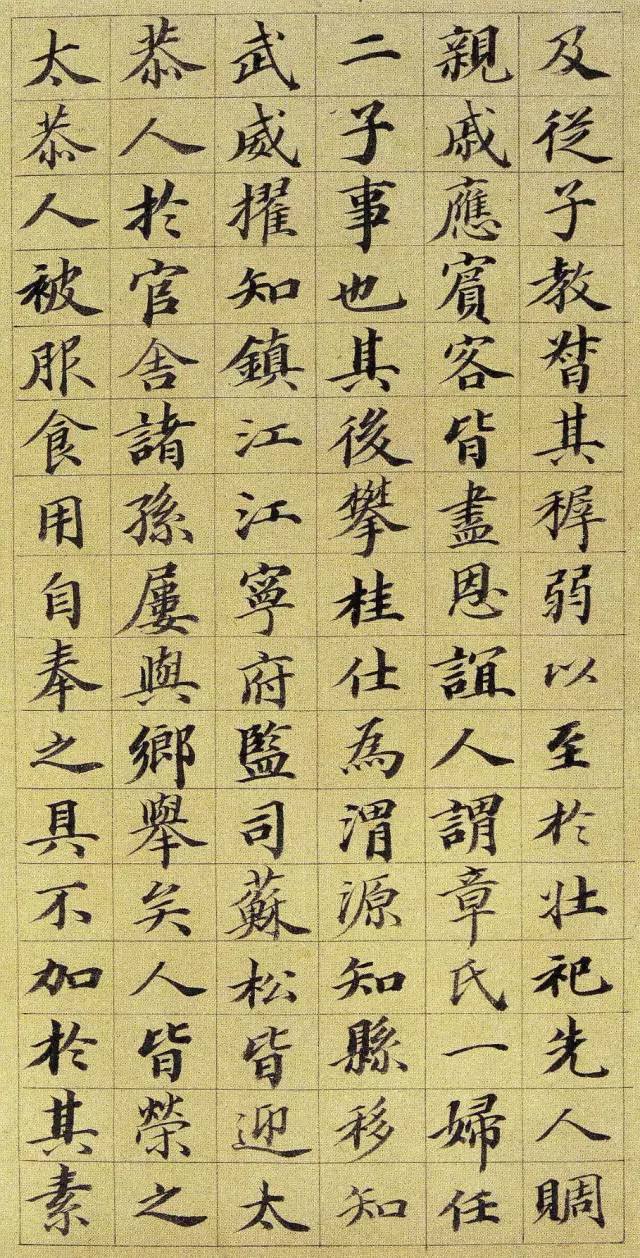 及從子教督其稺弱以至於壯祀先人賙
親戚應賓客皆盡恩誼人謂章氏一婦任
二子事也其後攀桂仕為渭源知縣移知
武威擢知鎮江江寧府監司蘇松皆迎太
恭人於官舍諸孫屢與鄉舉矣人皆榮之
太恭人被服食用自奉之具不加於其素